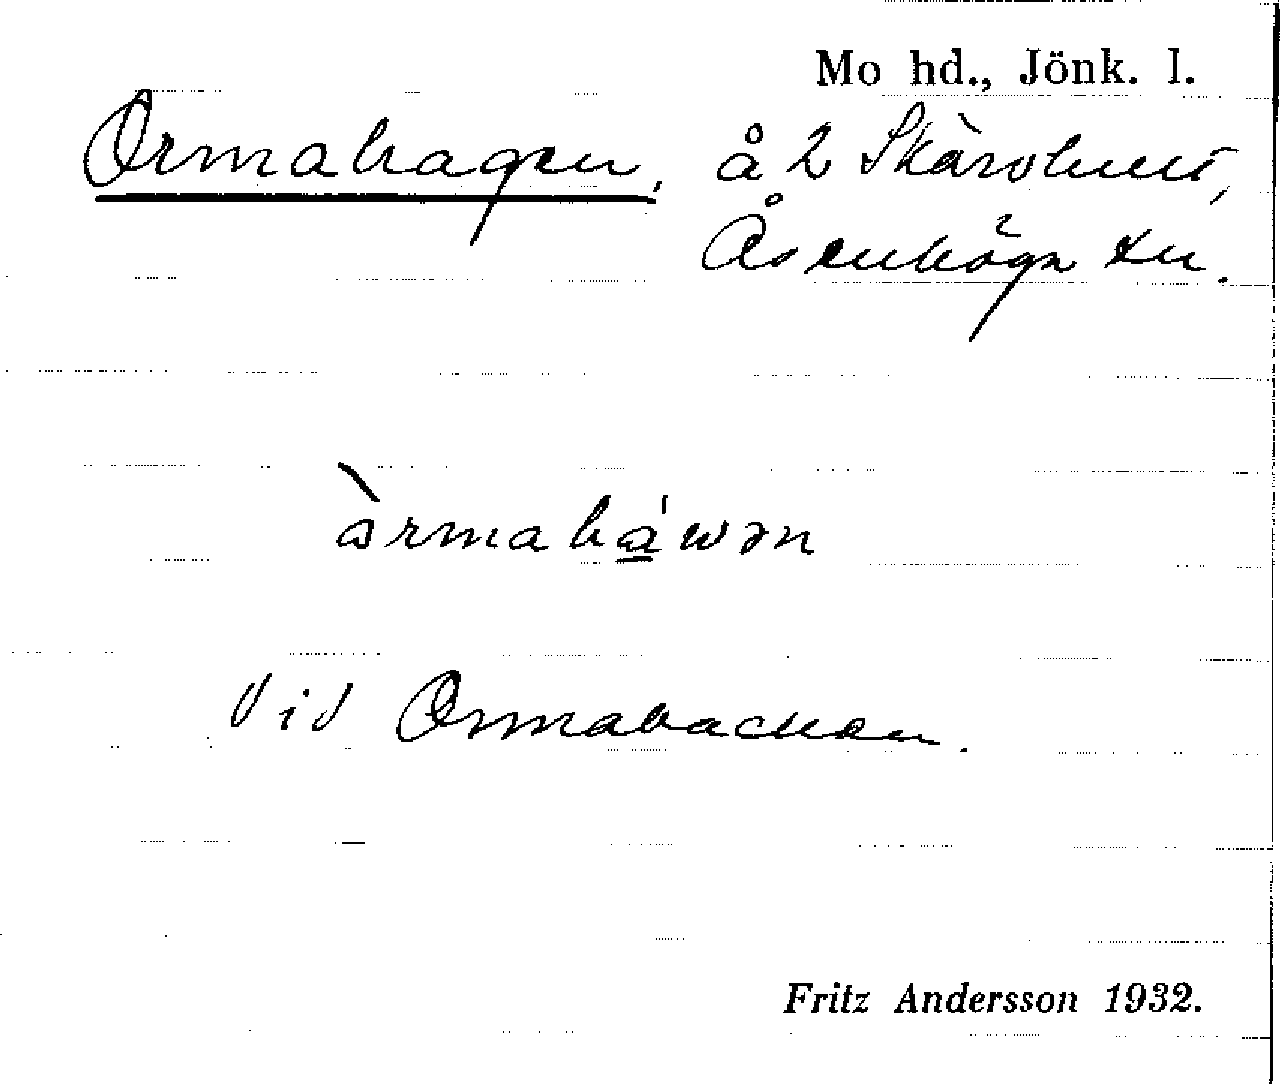 Mo hd., Jönk. l.
Ormahagen, å 2 Skärvhult,
Åsenhöga sn.
àrmaháwən
Vid Ormabacken.
Fritz Andersson 1932.